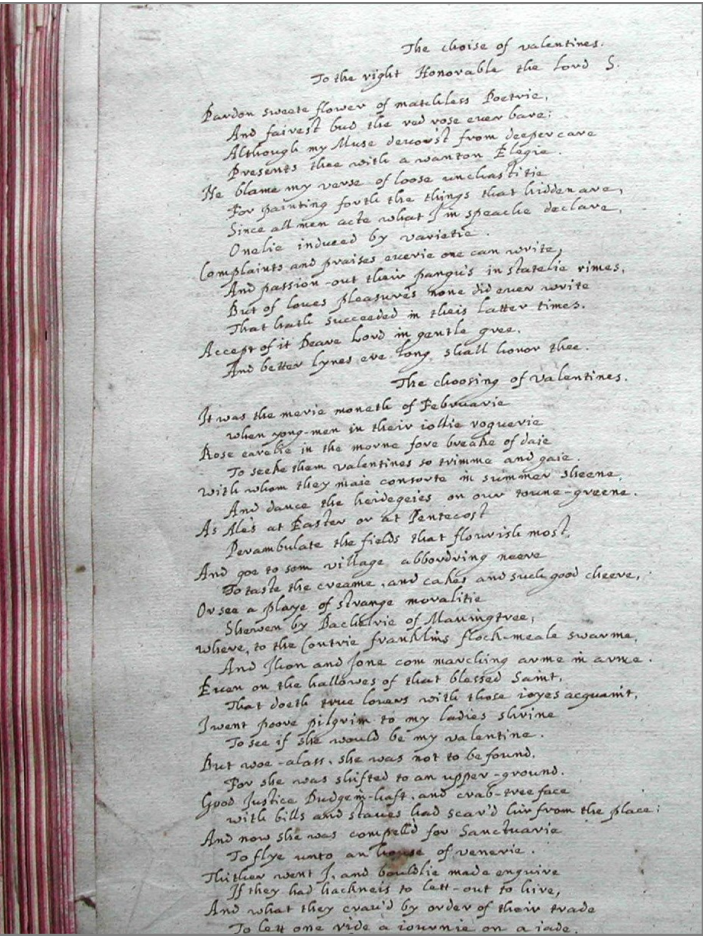 The choise of valentines.
To the right Honorable the lord S.
Pardon sweete flower of matchless Poetrie,
And fairest bud the red rose euer bare;
Although my Muse devorst from deeper care
Presents thee with a wanton Elegie.
Ne blame my verse of loose unchastitie
For painting forth the things that hidden are,
Since all men acte what I in speache declare,
Onelie induced by varietie.
Complaints and praises euerie one can write,
And passion-out their pangu's in statelie rimes,
But of loues pleasure's none did euer write
That hath succeeded in theis latter times.
Accept of it Deare Lord in gentle gree,
And better lynes ere long shall honor thee.
The choosing of valentines.
It was the merie moneth of Februarie
when yong-men in their iollie roguerie
Rose earelie in the morne fore breake of daie
To seeke them valentines so trimme and gaie.
with whom they maie consorte in summer sheene,
And dance the heidegeies on our toune-greene.
As Ale's at Easter or at Pentecost
Perambulate the fields that flourish most,
And goe to som village abbordring neere
To taste the creame, and cakes and such good cheere,
Or see a playe of strange moralitie
Shewen by Bachelrie of Maningtree;
where, to the Contrie franklins flock-meale swarme,
And Jhon and Jone com marching arme in arme.
Euen on the hallowes of that blessed Saint,
That doeth true louers with those ioyes acquaint,
I went poore pilgrim to my ladies shrine
To see if she would be my valentine.
But woe-alass, she was not to be found,
For she was shifted to an upper-ground.
Good Justice Dudgein-haft, and crab-tree face
with bills and staues had scar'd hir from the place;
And now she was compell'd for Sanctuarie
To flye unto an house of venerie.
Thither went I, and bouldlie made enquire
If they had hackneis to lett-out to hire,
And what they crau'd by order of their trade
To lett one ride a iournie on a iade.